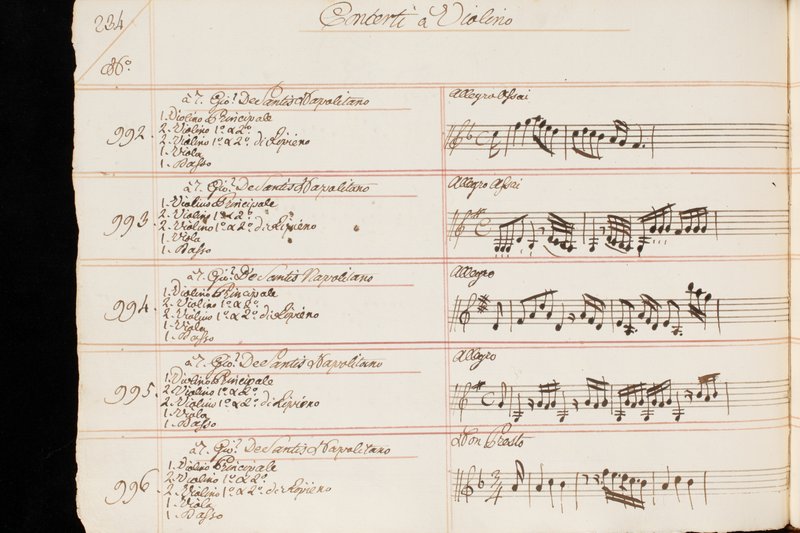 234
Concerti à Violino
No.
992.
à 7. Gio: De Santis Napolitano
1. Violino Principale
2. Violino 1º & 2º
2. Violino 1º & 2º di Ripieno
1. Viola
1. Basso
Allegro Assai
993.
à 7. Gio: De Santis Napolitano
1. Violino Principale
2. Violino 1º & 2º
2. Violino 1º & 2º di Ripieno
1. Viola
1. Basso
Allegro Assai
994.
à 7. Gio: De Santis Napolitano
1. Violino Principale
2. Violino 1º & 2º
2. Violino 1º & 2º di Ripieno
1. Viola
1. Basso
Allegro
995.
à 7. Gio: De Santis Napolitano
1. Violino Principale
2. Violino 1º & 2º
2. Violino 1º & 2º di Ripieno
1. Viola
1. Basso
Allegro
996.
à 7. Gio: De Santis Napolitano
1. Violino Principale
2. Violino 1º & 2º
2. Violino 1º & 2º di Ripieno
1. Viola
1. Basso
Non Presto
3
4